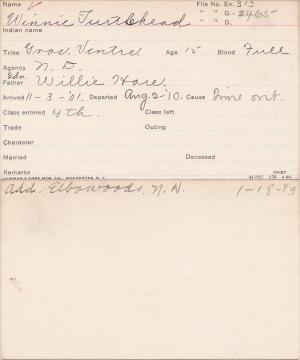 Name File No. En. 313
Winnie Turtlehead " " G- 2465
Indian name " " D.
Tribe Gros Ventre, Age 15 Blood Full
Agency N. D.
Gdn.
Father Willie Hare.
Arrived 11-3-'01. Departed Aug 2-'10. Cause Time out.
Class entered 4th. Class left
Trade Outing
Character
Married Deceased
Remarks over
Add. Elbowoods, N. D. 1-18-13